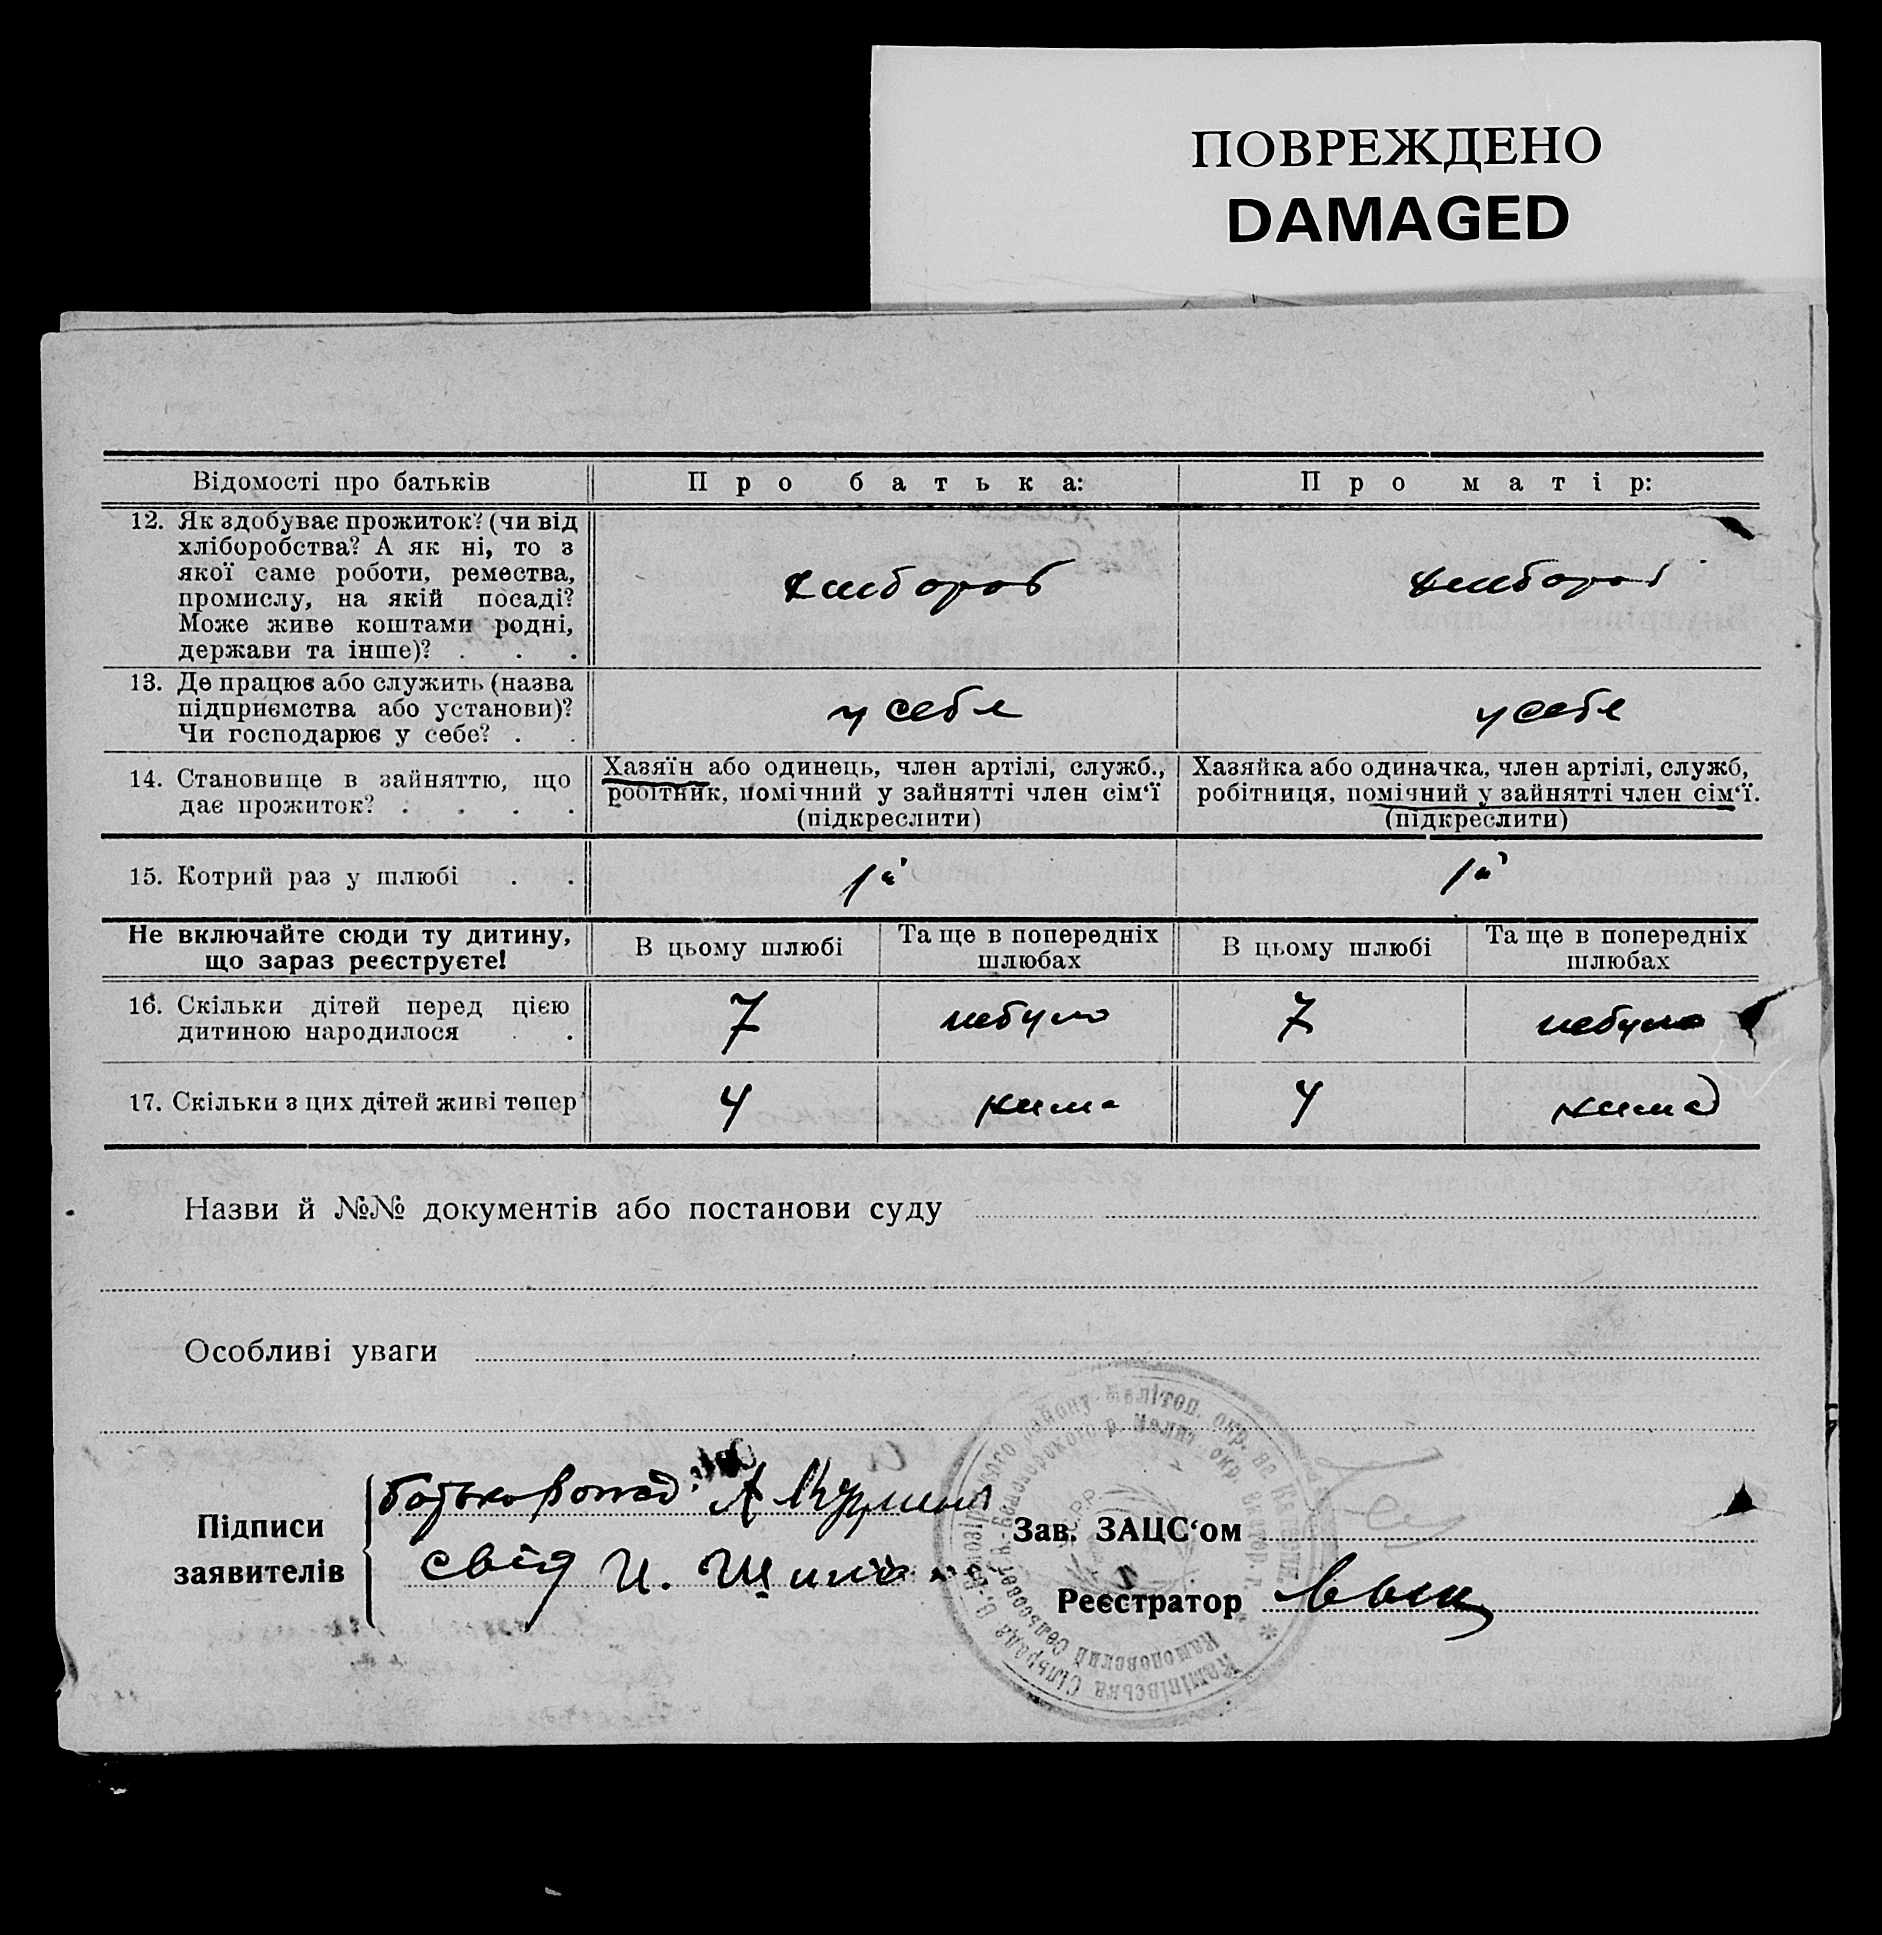 ПОВРЕЖДЕНО
DAMAGED
Відомості про батьків
Про батька:
Про матір:
12. Як здобуває прожиток? (чи від
хліборобства? А як ні, то з
якої саме роботи, ремества,
промислу, на якій посаді?
Може живе коштами родні,
держави та інше)? . . .
хлибороб
хлибороб
13. Де працює або служить (назва
підприємства або установи)?
Чи господарює у себе? . .
у себе
у себе
14. Становище в зайняттю, що
дає прожиток? . . . .
Хазяїн або одинець, член артілі, служб.,
робітник, помічний у зайнятті член сім‘ї
(підкреслити)
Хазяйка або одиначка, член артілі, служб,
робітниця, помічний у зайнятті член сім‘ї.
(підкреслити)
15. Котрий раз у шлюбі . .
1й
1й
Не включайте сюди ту дитину,
що зараз реєструєте!
В цьому шлюбі
Та ще в попередніх
шлюбах
В цьому шлюбі
Та ще в попередніх
шлюбах
16. Скільки дітей перед цією
дитиною народилося . .
7
небуло
7
небуло
17. Скільки з цих дітей живі тепер
4
нима
4
нима
Назви й №№ документів або постанови суду
Особливі уваги
Підписи
заявителів
батько
А
свід И.
Зав. ЗАЦС‘ом
Реєстратор